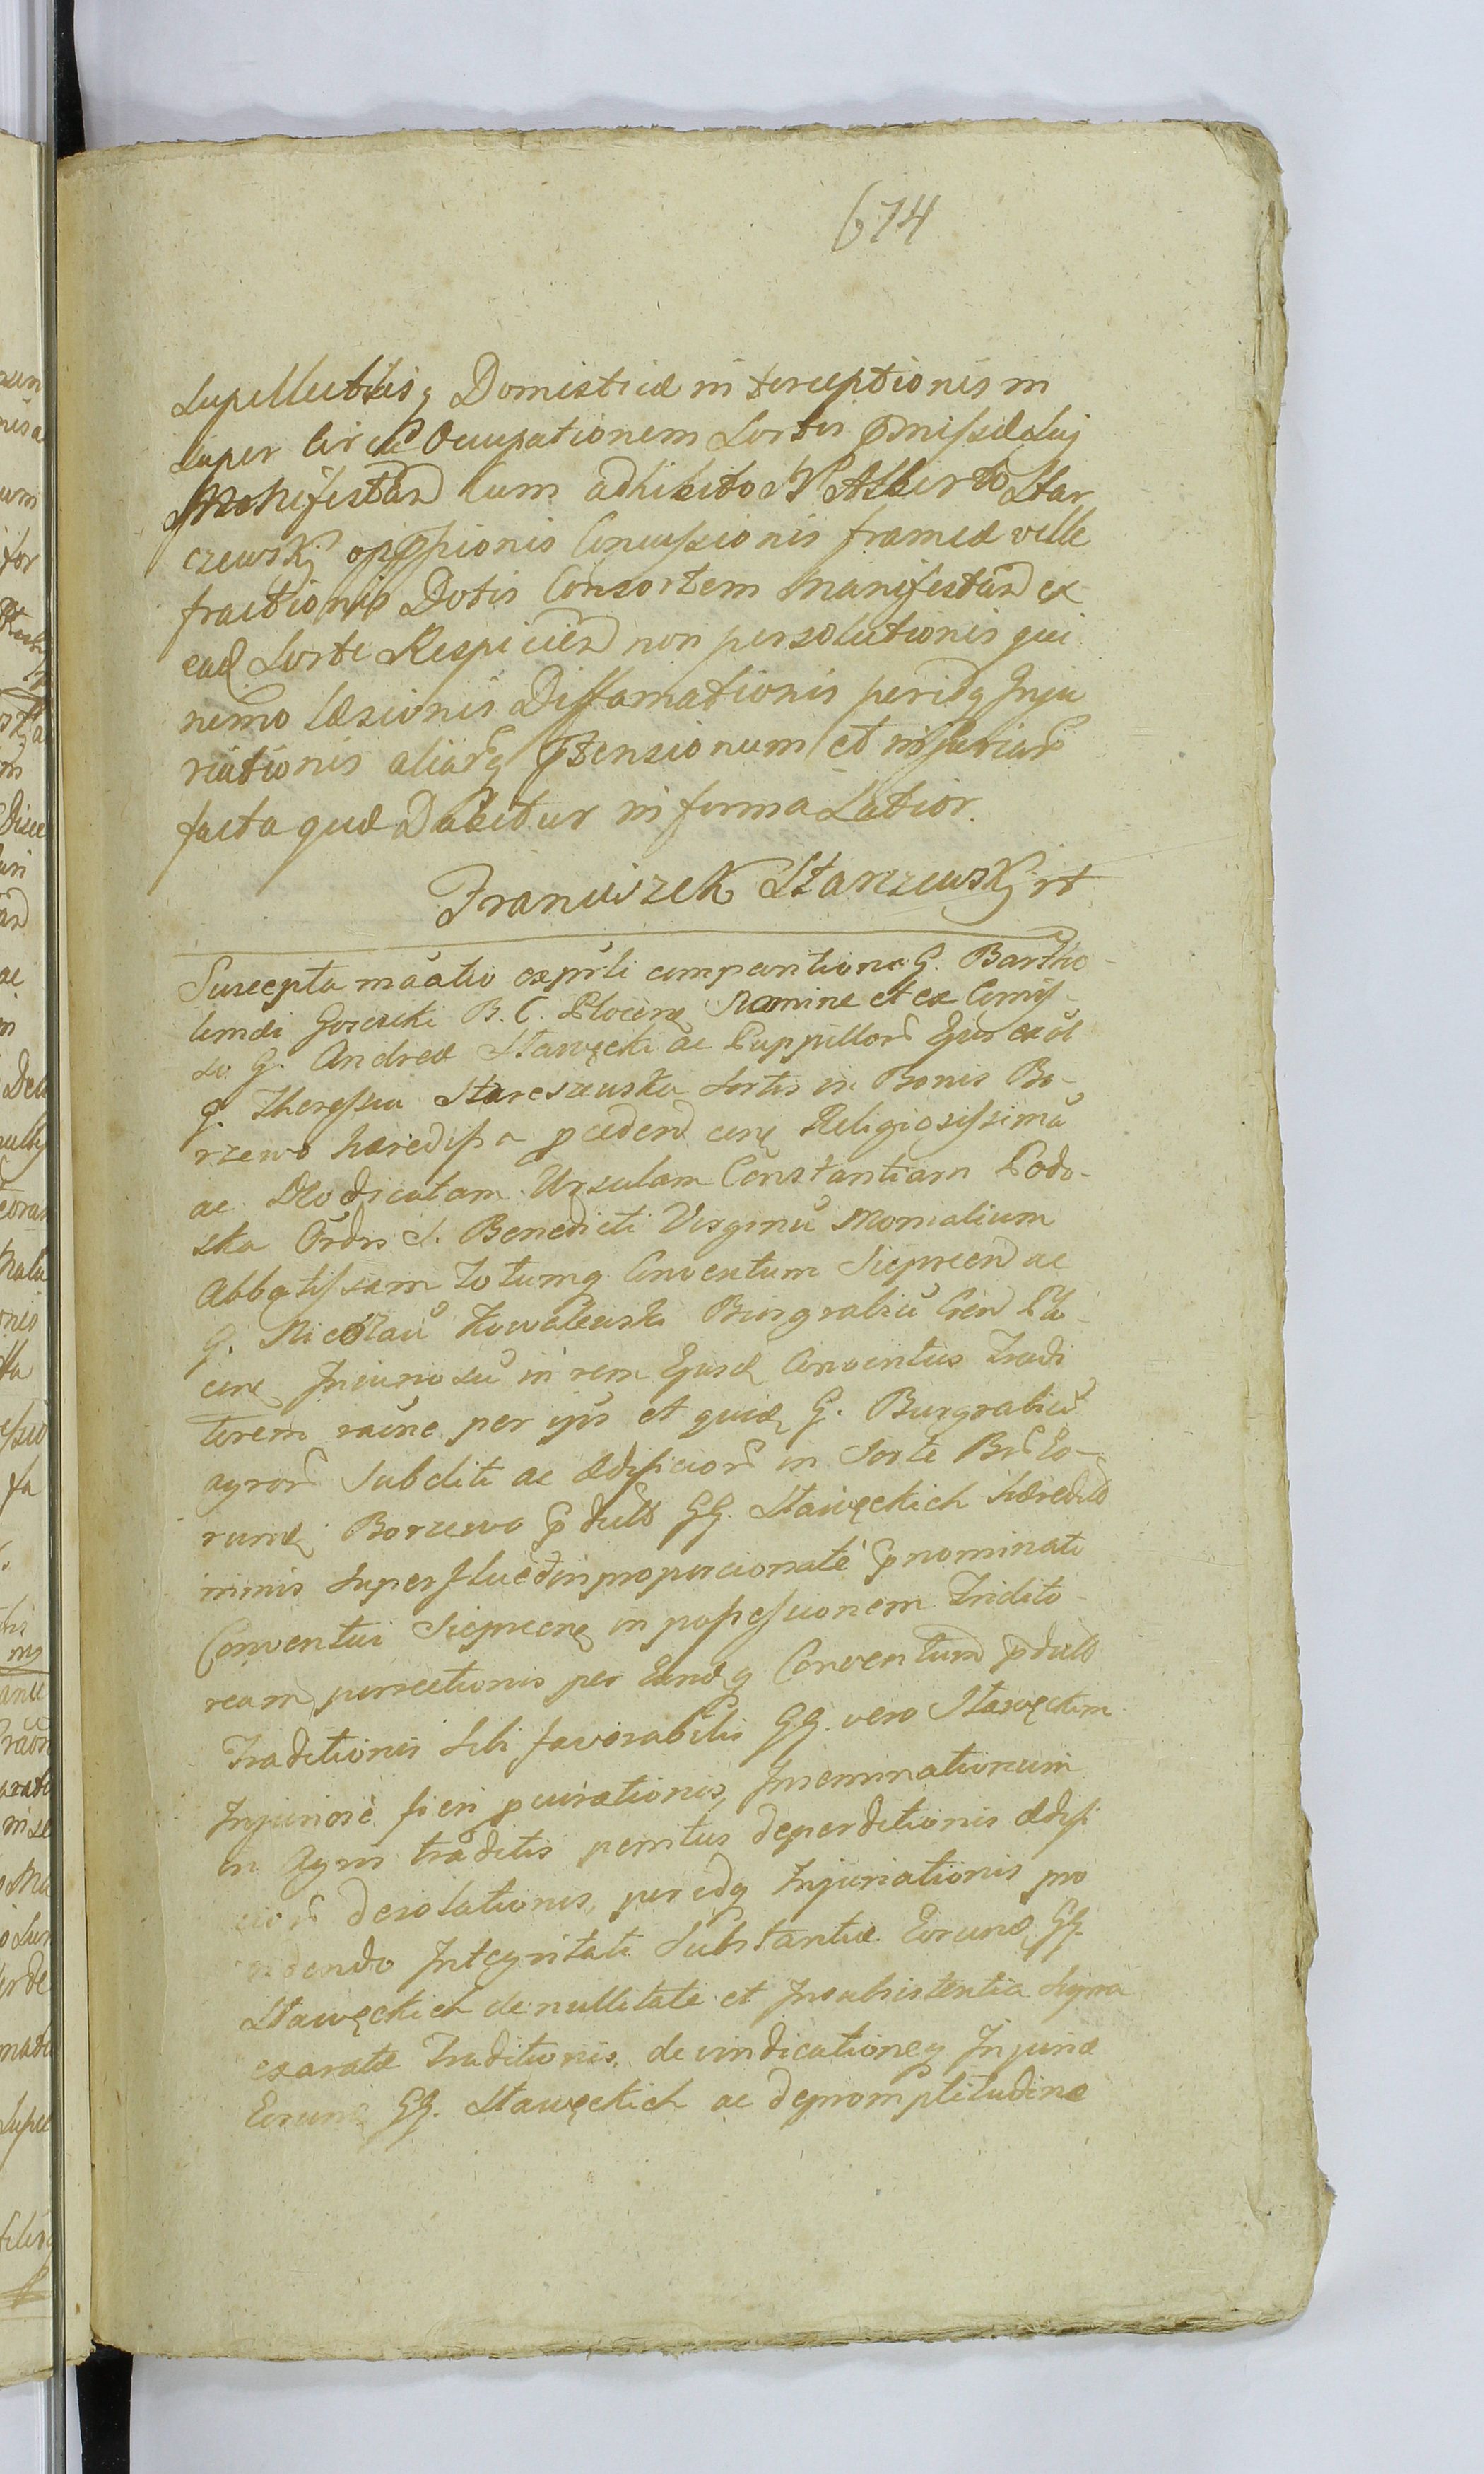 674
Supellectilisq Domesticæ interceptionis in
super circa Occupationem Sortis pmissæ Suj
Manifestan cum adhibito N Alberto Star
czewskj oppssionis Concussionis frameæ velle
fractionis Dotis Consortem Manifestan ex
ead Sorte Respicien non persolutionis qui
nemo læsionis Diffamationis peridq Inju
riationis aliarq ptensionum et injuriar
facta quæ Dabitur in forma Latior.
Franciszek Starczewskj rt
Suscepta maatio exprsti comparitione G. Bartho-
lomæi Gorecki B. C. Plocen Nomine et ex Comis-
so G. Andreæ Stawęcki ac Puppillor Ejus ex ol
g. Theressia Starczewska Sortis in Bonis Bo-
rzewo hæredis a pcedend cone Religiosissimā
ac DEo dicatam Ursulam Constantiam Podo-
ska Ordis S. Benedicti Virginū Monialium
Abbatissam totumq Conventum Sieprcen ac
G. Nicolaū Kowalewski Burgrabiū Cren Plo
cen Injuriosū in rem Ejusd Conventus Tradi
torem raōne per ips et quid G. Burgrabiū
agror Subditi ac ædificior in Sorte
rund Borzewo pdicto GG. Stawęckich hæredito
minis Superflue & inproporcionatè pnominati
Conventui Sieprcen in possessionem Tradito
ream, perrectionis per Eundq Conventum pdicto
Traditionis Sibi favorabilis GG. vero Stawęckim
Injuriosè fieri pcurationis, Inseminationum
in Agris traditis penitus deperditionis ædifi
cior desolationis, per idq Injuriationis pro
videndo Integritati Substantiæ Eorund GG.
Stawęckich de nullitate et Insubsistentia Supra
exaratæ Traditionis, de vindicationeq Injuriæ
Eorund GG. Stawęckich ac depromptitudine